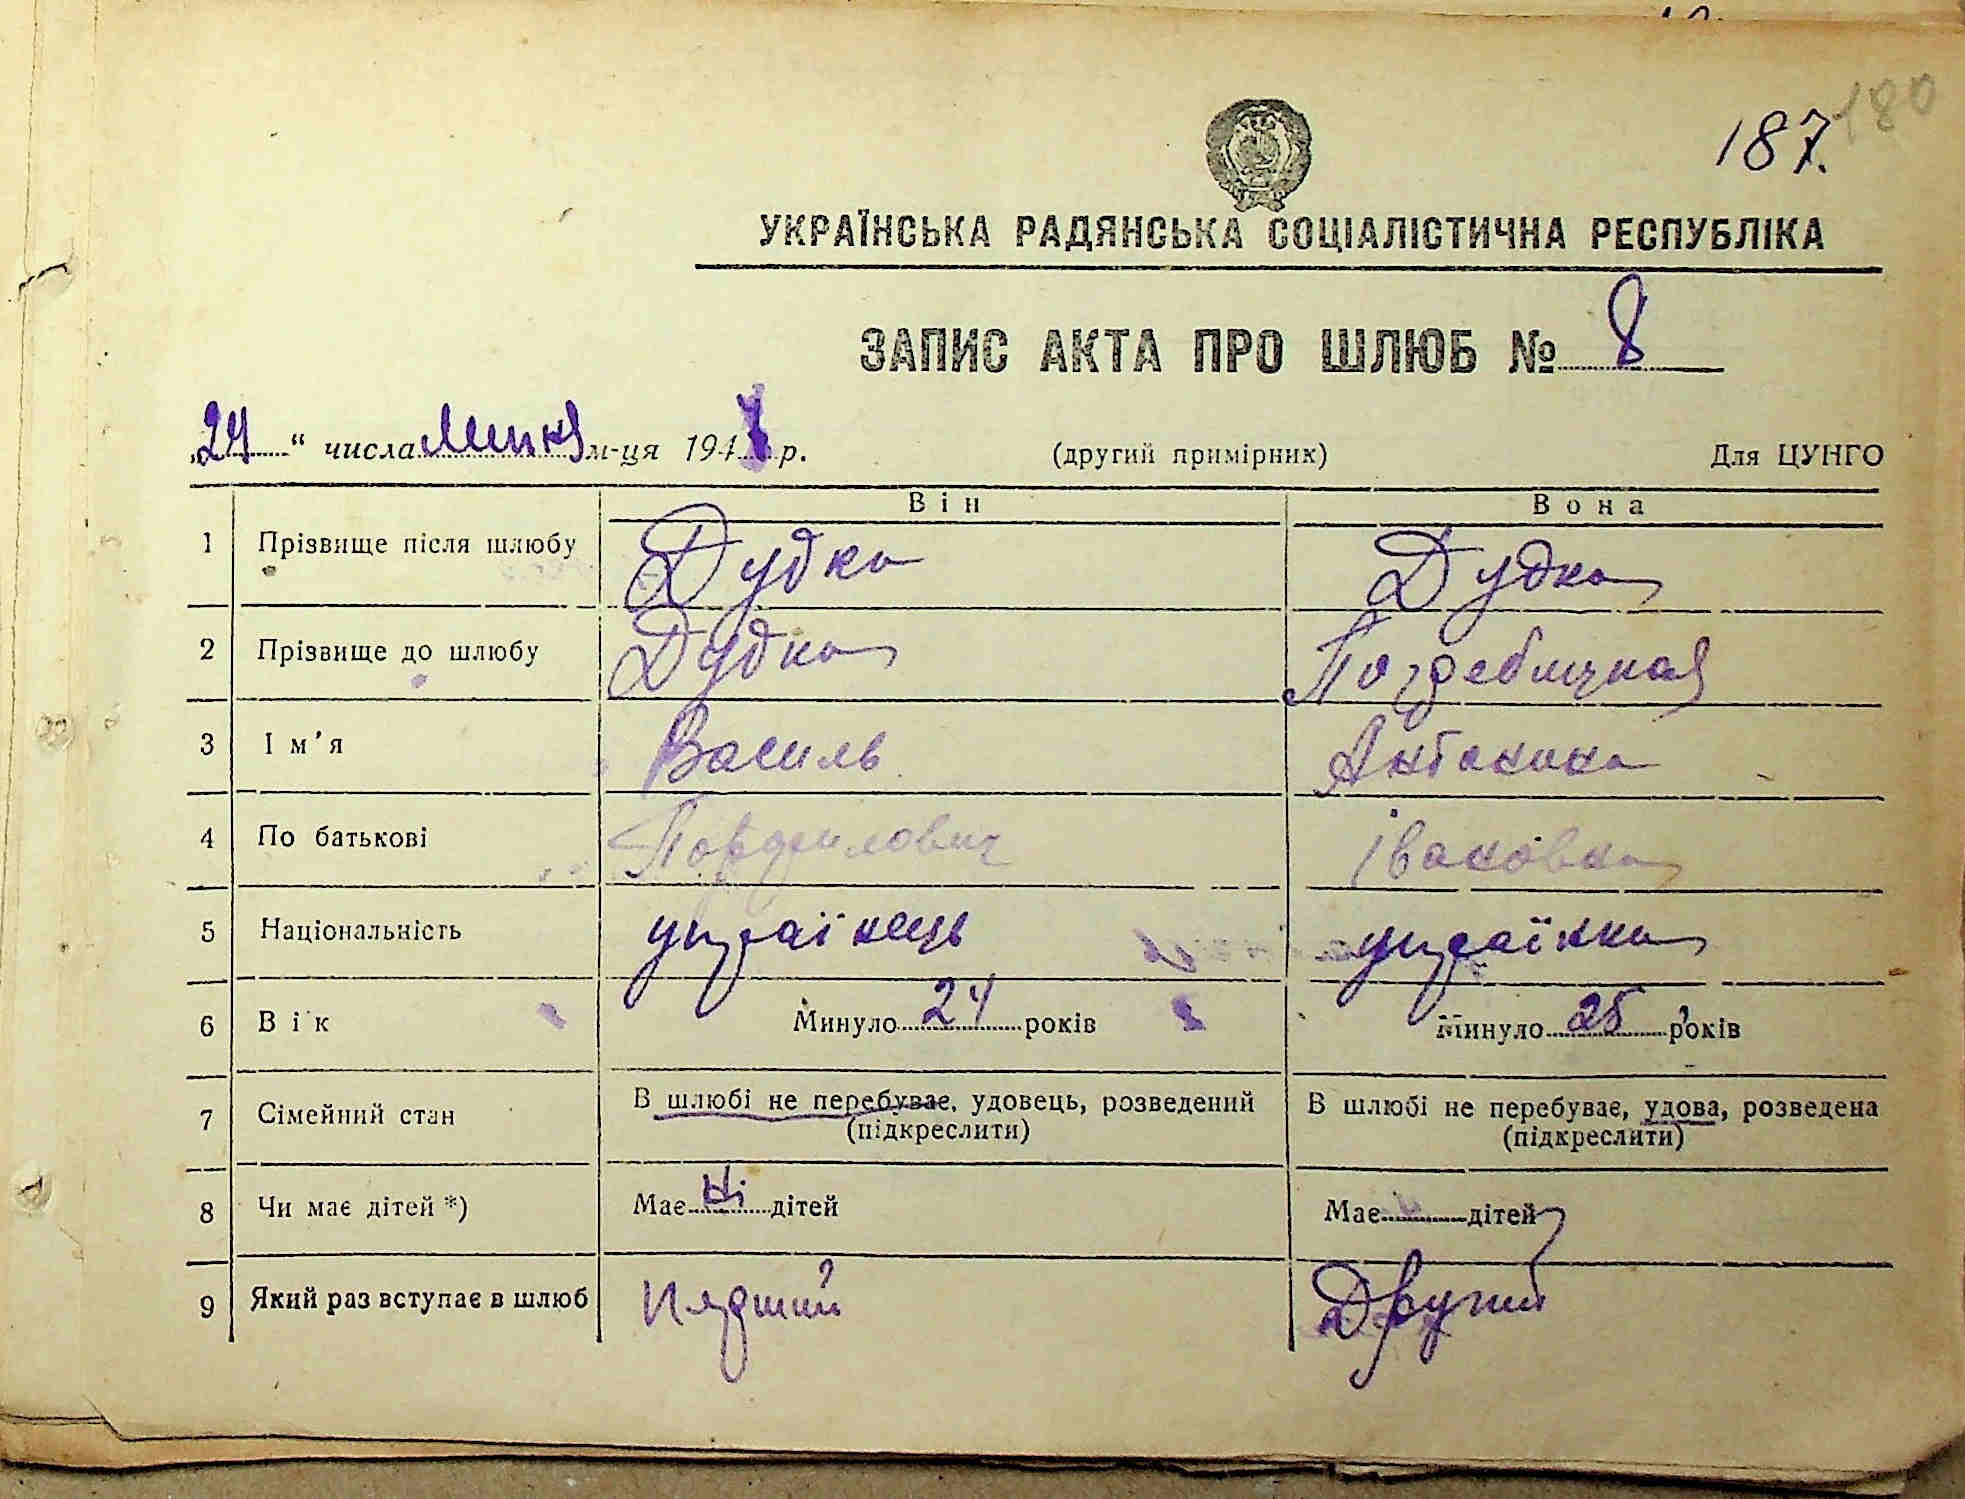 187. 180
УКРАЇНСЬКА РАДЯНСЬКА СОЦІАЛІСТИЧНА РЕСПУБЛІКА
ЗАПИС АКТА ПРО ШЛЮБ № 8
„24“ числа м-ця 194 р. (другий примірник) Для ЦУНГО
Він Вона
1 Прізвище після шлюбу Дудка Дудка
2 Прізвище до шлюбу Дудка Погребичная
3 Ім’я Василь Антонина
4 По батькові Порфилович Івановна
5 Національність українець українка
6 Вік Минуло 24 років Минуло 25 років
7 Сімейний стан В шлюбі не перебуває, удовець, розведений В шлюбі не перебуває, удова, розведена
(підкреслити) (підкреслити)
8 Чи має дітей *) Має ні дітей Має дітей
9 Який раз вступає в шлюб перший Другий